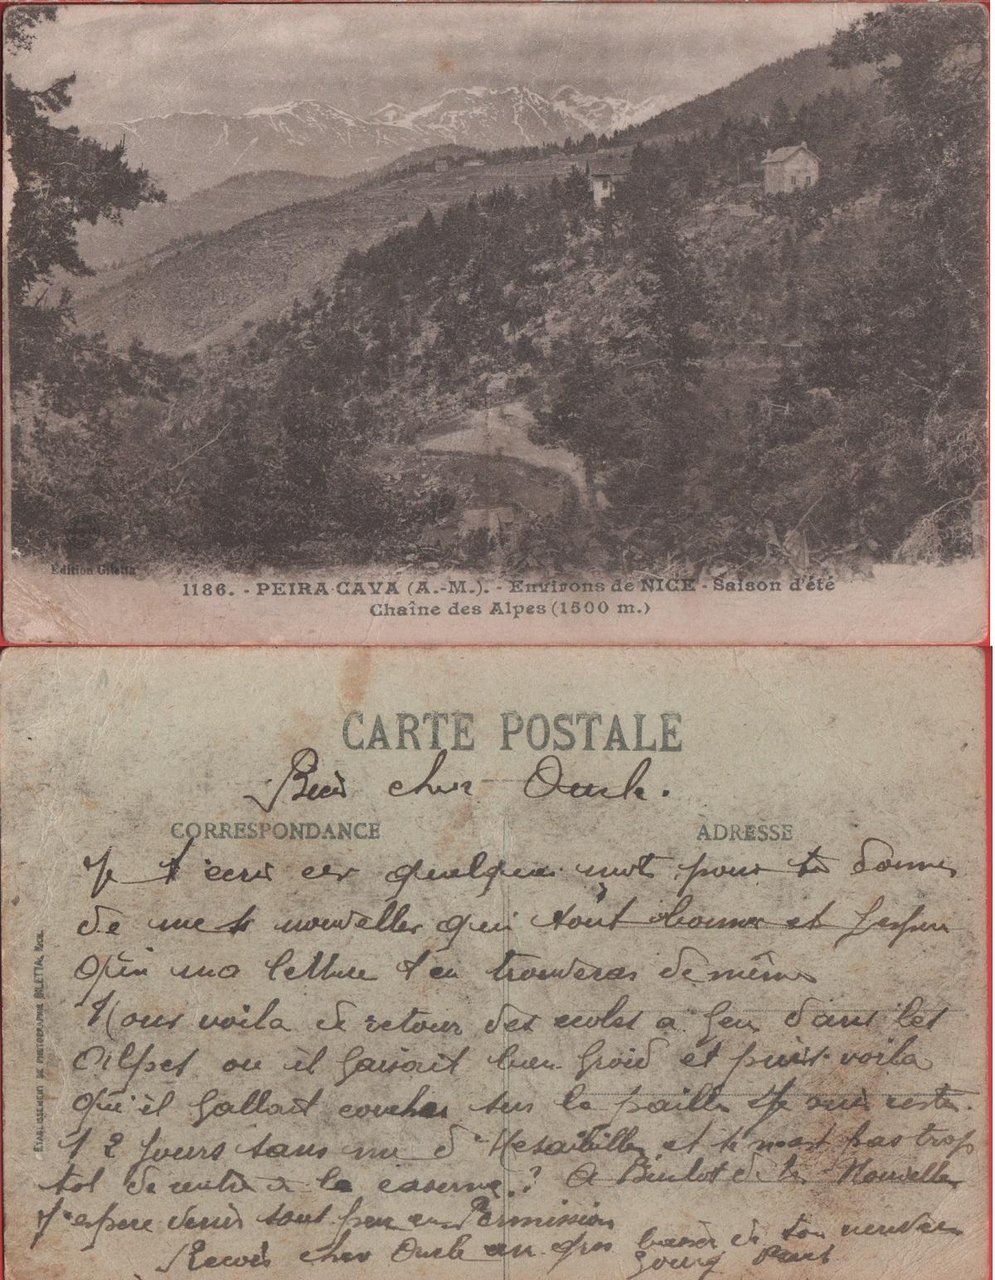 Édition Giletta
1186. - PEIRA-CAVA (A.-M.). - Environs de NICE - Saison d'été
Chaîne des Alpes (1500 m.)
CARTE POSTALE
Bien cher Oncle.
CORRESPONDANCE
ADRESSE
Je t'ecris ces quelques mots pour te donner
de mes nouvelles qui sont bonnes et j'espere
que ma lettre t'en trouveras de même
Nous voila de retour des ecoles a feu dans les
Alpes ou il faisait bien froid et puis voila
qu'il fallait coucher sur la paille Je suis reste
12 jours sans me et se n'est pas trop
tot de rentre a la caserne? A Bientot de tes Nouvelles
J'espere venir sous peu en Permission
Recois cher Oncle un gros baiser de ton neveu
ÉTABLISSEMENT DE PHOTOGRAPHIE GILETTA, NICE.